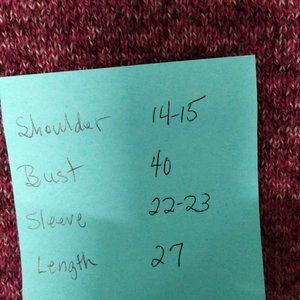 Shoulder 14-15
Bust 40
Sleeve 22-23
Length 27